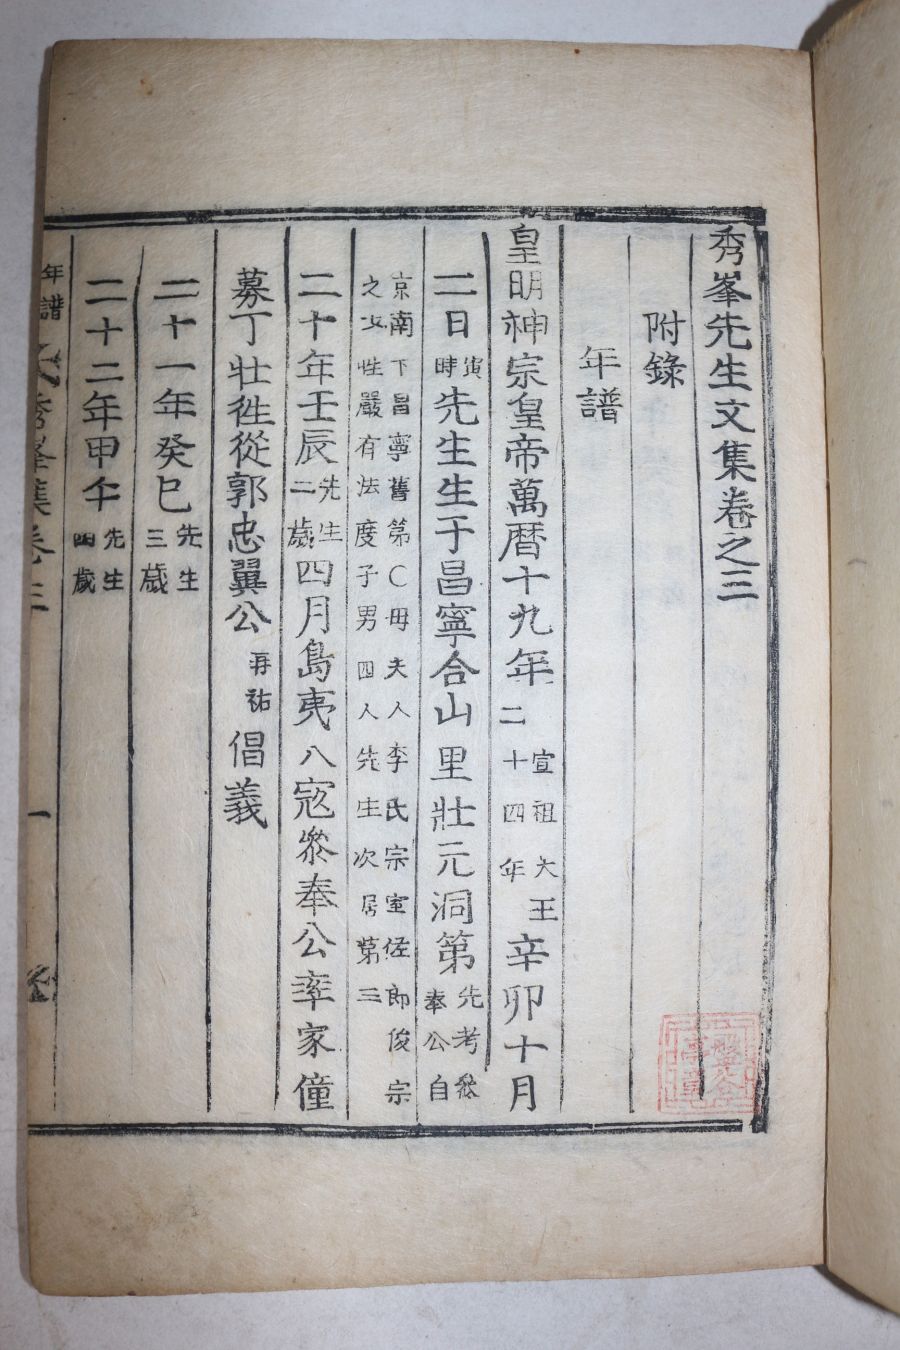 秀峯先生文集卷之三
附錄
年譜
皇明神宗皇帝萬曆十九年宣祖大王二十四年辛卯十月
二日寅時先生生于昌寧合山里壯元洞第先考叅奉公自
京南下昌寧舊第〇母夫人李氏宗室佐郎俊宗
之女性嚴有法度子男四人先生次居第三
二十年壬辰先生二歲四月島夷入寇叅奉公率家僮
募丁壯徃從郭忠翼公再祐倡義
二十一年癸巳先生三歲
二十二年甲午先生四歲
年譜 秀峯集卷三 一